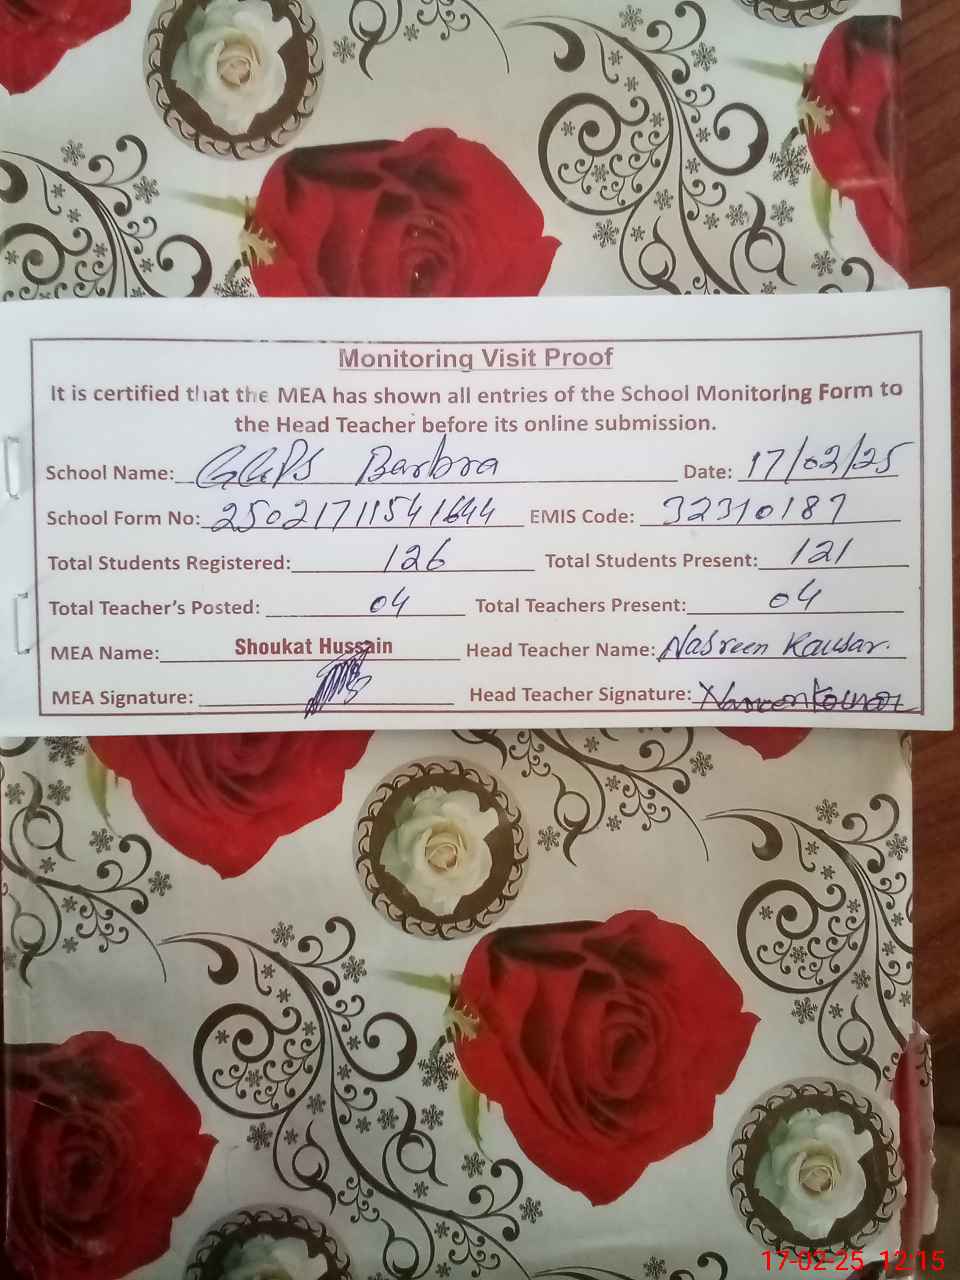 Monitoring Visit Proof
It is certified that the MEA has shown all entries of the School Monitoring Form to
the Head Teacher before its online submission.
School Name: GGPS Barbra Date: 17/02/25
School Form No: 25021711541644 EMIS Code: 32310187
Total Students Registered: 126 Total Students Present: 121
Total Teacher's Posted: 04 Total Teachers Present: 04
MEA Name: Shoukat Hussain Head Teacher Name: Nasreen Kausar.
MEA Signature: Head Teacher Signature: Nasreen Kausar
17-02-25 12:15